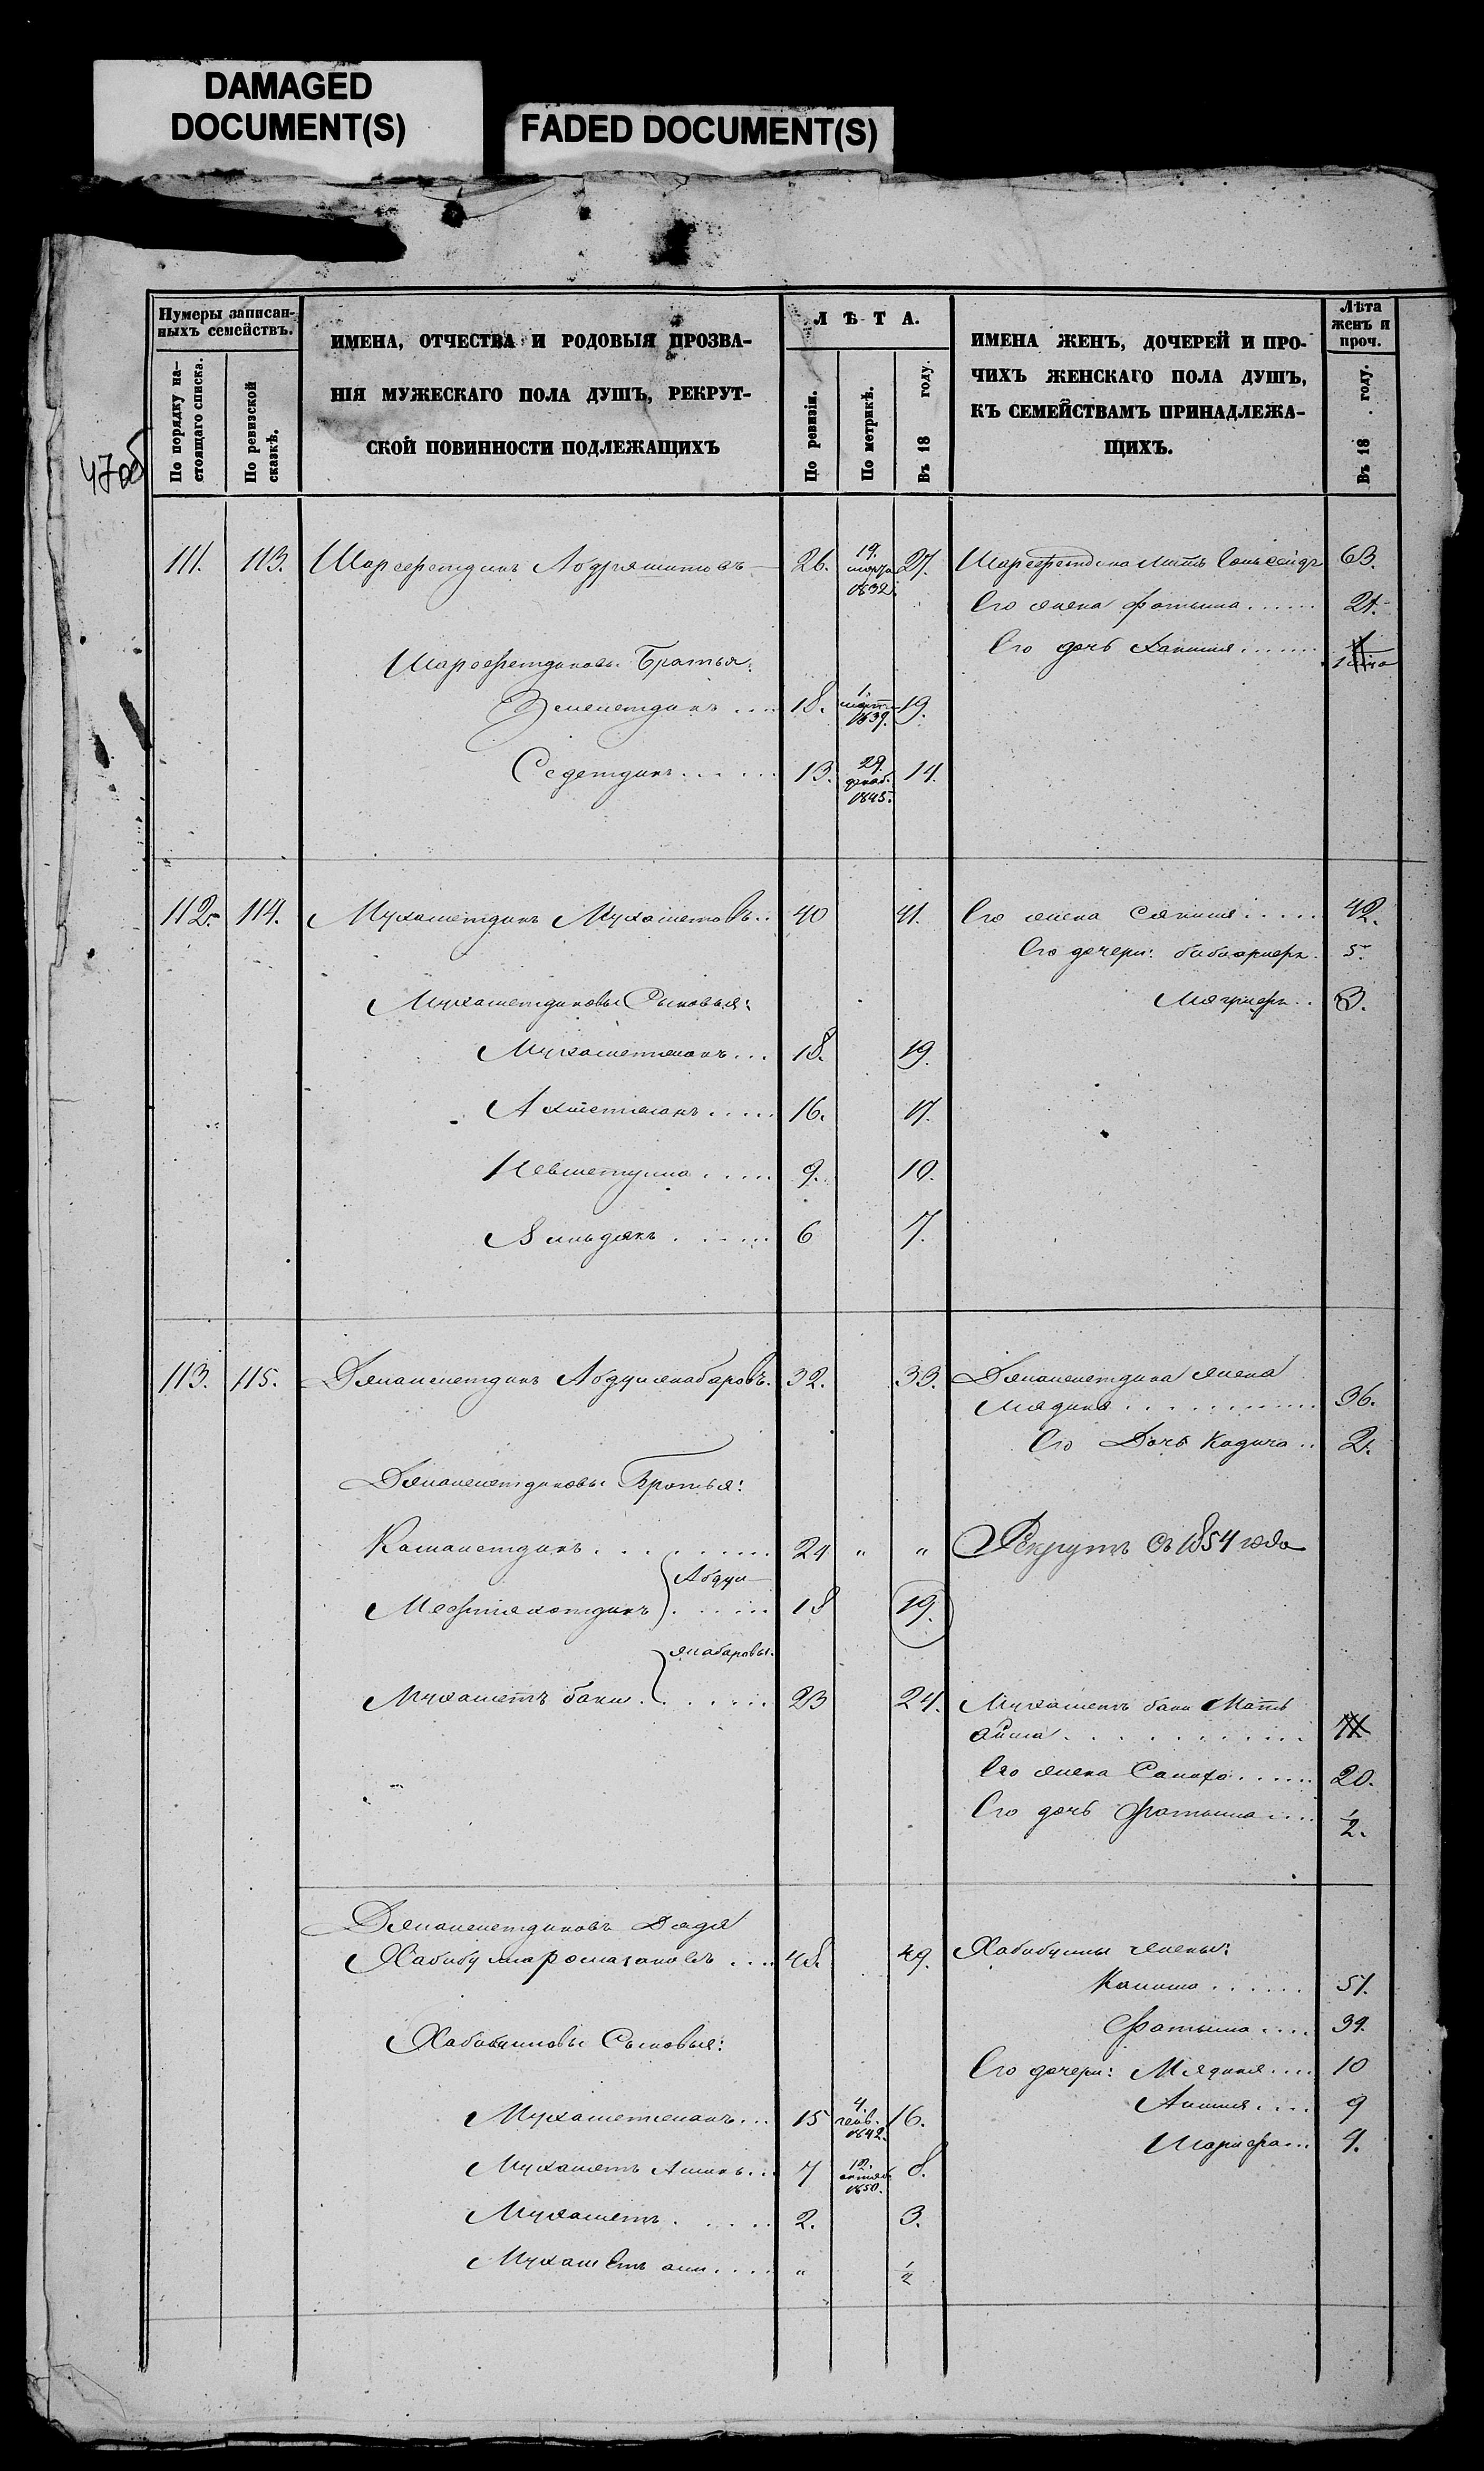 DAMAGED
DOCUMENT(S)
FADED DOCUMENT(S)
47об
Нумеры записан-
ныхъ семействъ.
По порядку на-
стоящаго списка.
По ревизской
сказкѣ.
ИМЕНА, ОТЧЕСТВА И РОДОВЫЯ ПРОЗВА-
НІЯ МУЖЕСКАГО ПОЛА ДУШЪ, РЕКРУТ-
СКОЙ ПОВИННОСТИ ПОДЛЕЖАЩИХЪ
ЛѢТА.
По ревизіи.
По метрикѣ.
Въ 18 году.
ИМЕНА ЖЕНЪ, ДОЧЕРЕЙ И ПРО-
ЧИХЪ ЖЕНСКАГО ПОЛА ДУШЪ,
КЪ СЕМЕЙСТВАМЪ ПРИНАДЛЕЖА-
ЩИХЪ.
Лѣта
женъ и
проч.
Въ 18 году.
111. 113. Шарефетдинъ Абдряшитовъ 26. 19. марта 1832. 27. Шарефетдина мать 63.
Его жена Фатыма 21.
Его дочь Ханифя
Шарефетдиновы Братья:
Земелетдинъ 18. 1. марта 1839. 19.
Седетдинъ 13. 29. декаб. 1845. 14.
112. 114. Мухаметдинъ Мухаметовъ 40 41. Его жена Сапыля 42.
Его дочери: бибисариеръ 5.
3.
Мухаметдиновы Сыновья:
Мухаметжанъ 18. 19.
Ахметжанъ 16. 17.
9. 10.
6 7.
113. 115. Джамалетдинъ Абдулжабаровъ. 32. 33. Джамалетдина жена
Мядина 36.
Его Дочь Кадича 2.
Джамалетдиновы Братья:
Камалетдинъ 24 " " Рекрутъ съ 1854 года
Абдул-
Мефтахотдинъ 18 19.
жабаровы.
Мухаметъ баки 23 24. Мухаметъ баки Мать
Айша
Его жена Сапифа 20.
Его дочь Фатыма 1/2.
Джамалетдиновъ Дядя
Хабибулла Рамазановъ 48. 49. Хабибуллы жены:
Калима 51.
Фатыма 39.
Хабибулловы Сыновья:
Его дочери: Мядиня 10
Мухаметжанъ 15 4. генв. 1842. 16. 9
Шарифа 4.
Мухаметъ Аминъ 7 12. октяб. 1850. 8.
Мухаметъ 2. 3.
Мухаметъ али " 1/2